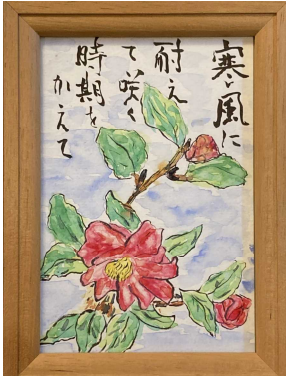 寒風に
耐え
て咲く
時期を
かえて